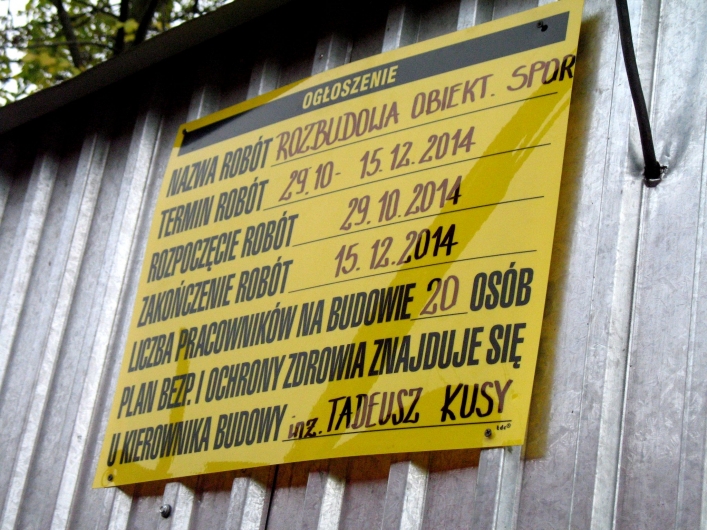 OGŁOSZENIE
NAZWA ROBÓT ROZBUDOWA OBIEKT. SPOR
TERMIN ROBÓT 29.10- 15.12.2014
ROZPOCZĘCIE ROBÓT 29.10.2014
ZAKOŃCZENIE ROBÓT 15.12.2014
LICZBA PRACOWNIKÓW NA BUDOWIE 20 OSÓB
PLAN BEZP. I OCHRONY ZDROWIA ZNAJDUJE SIĘ
U KIEROWNIKA BUDOWY inż. TADEUSZ KUSY